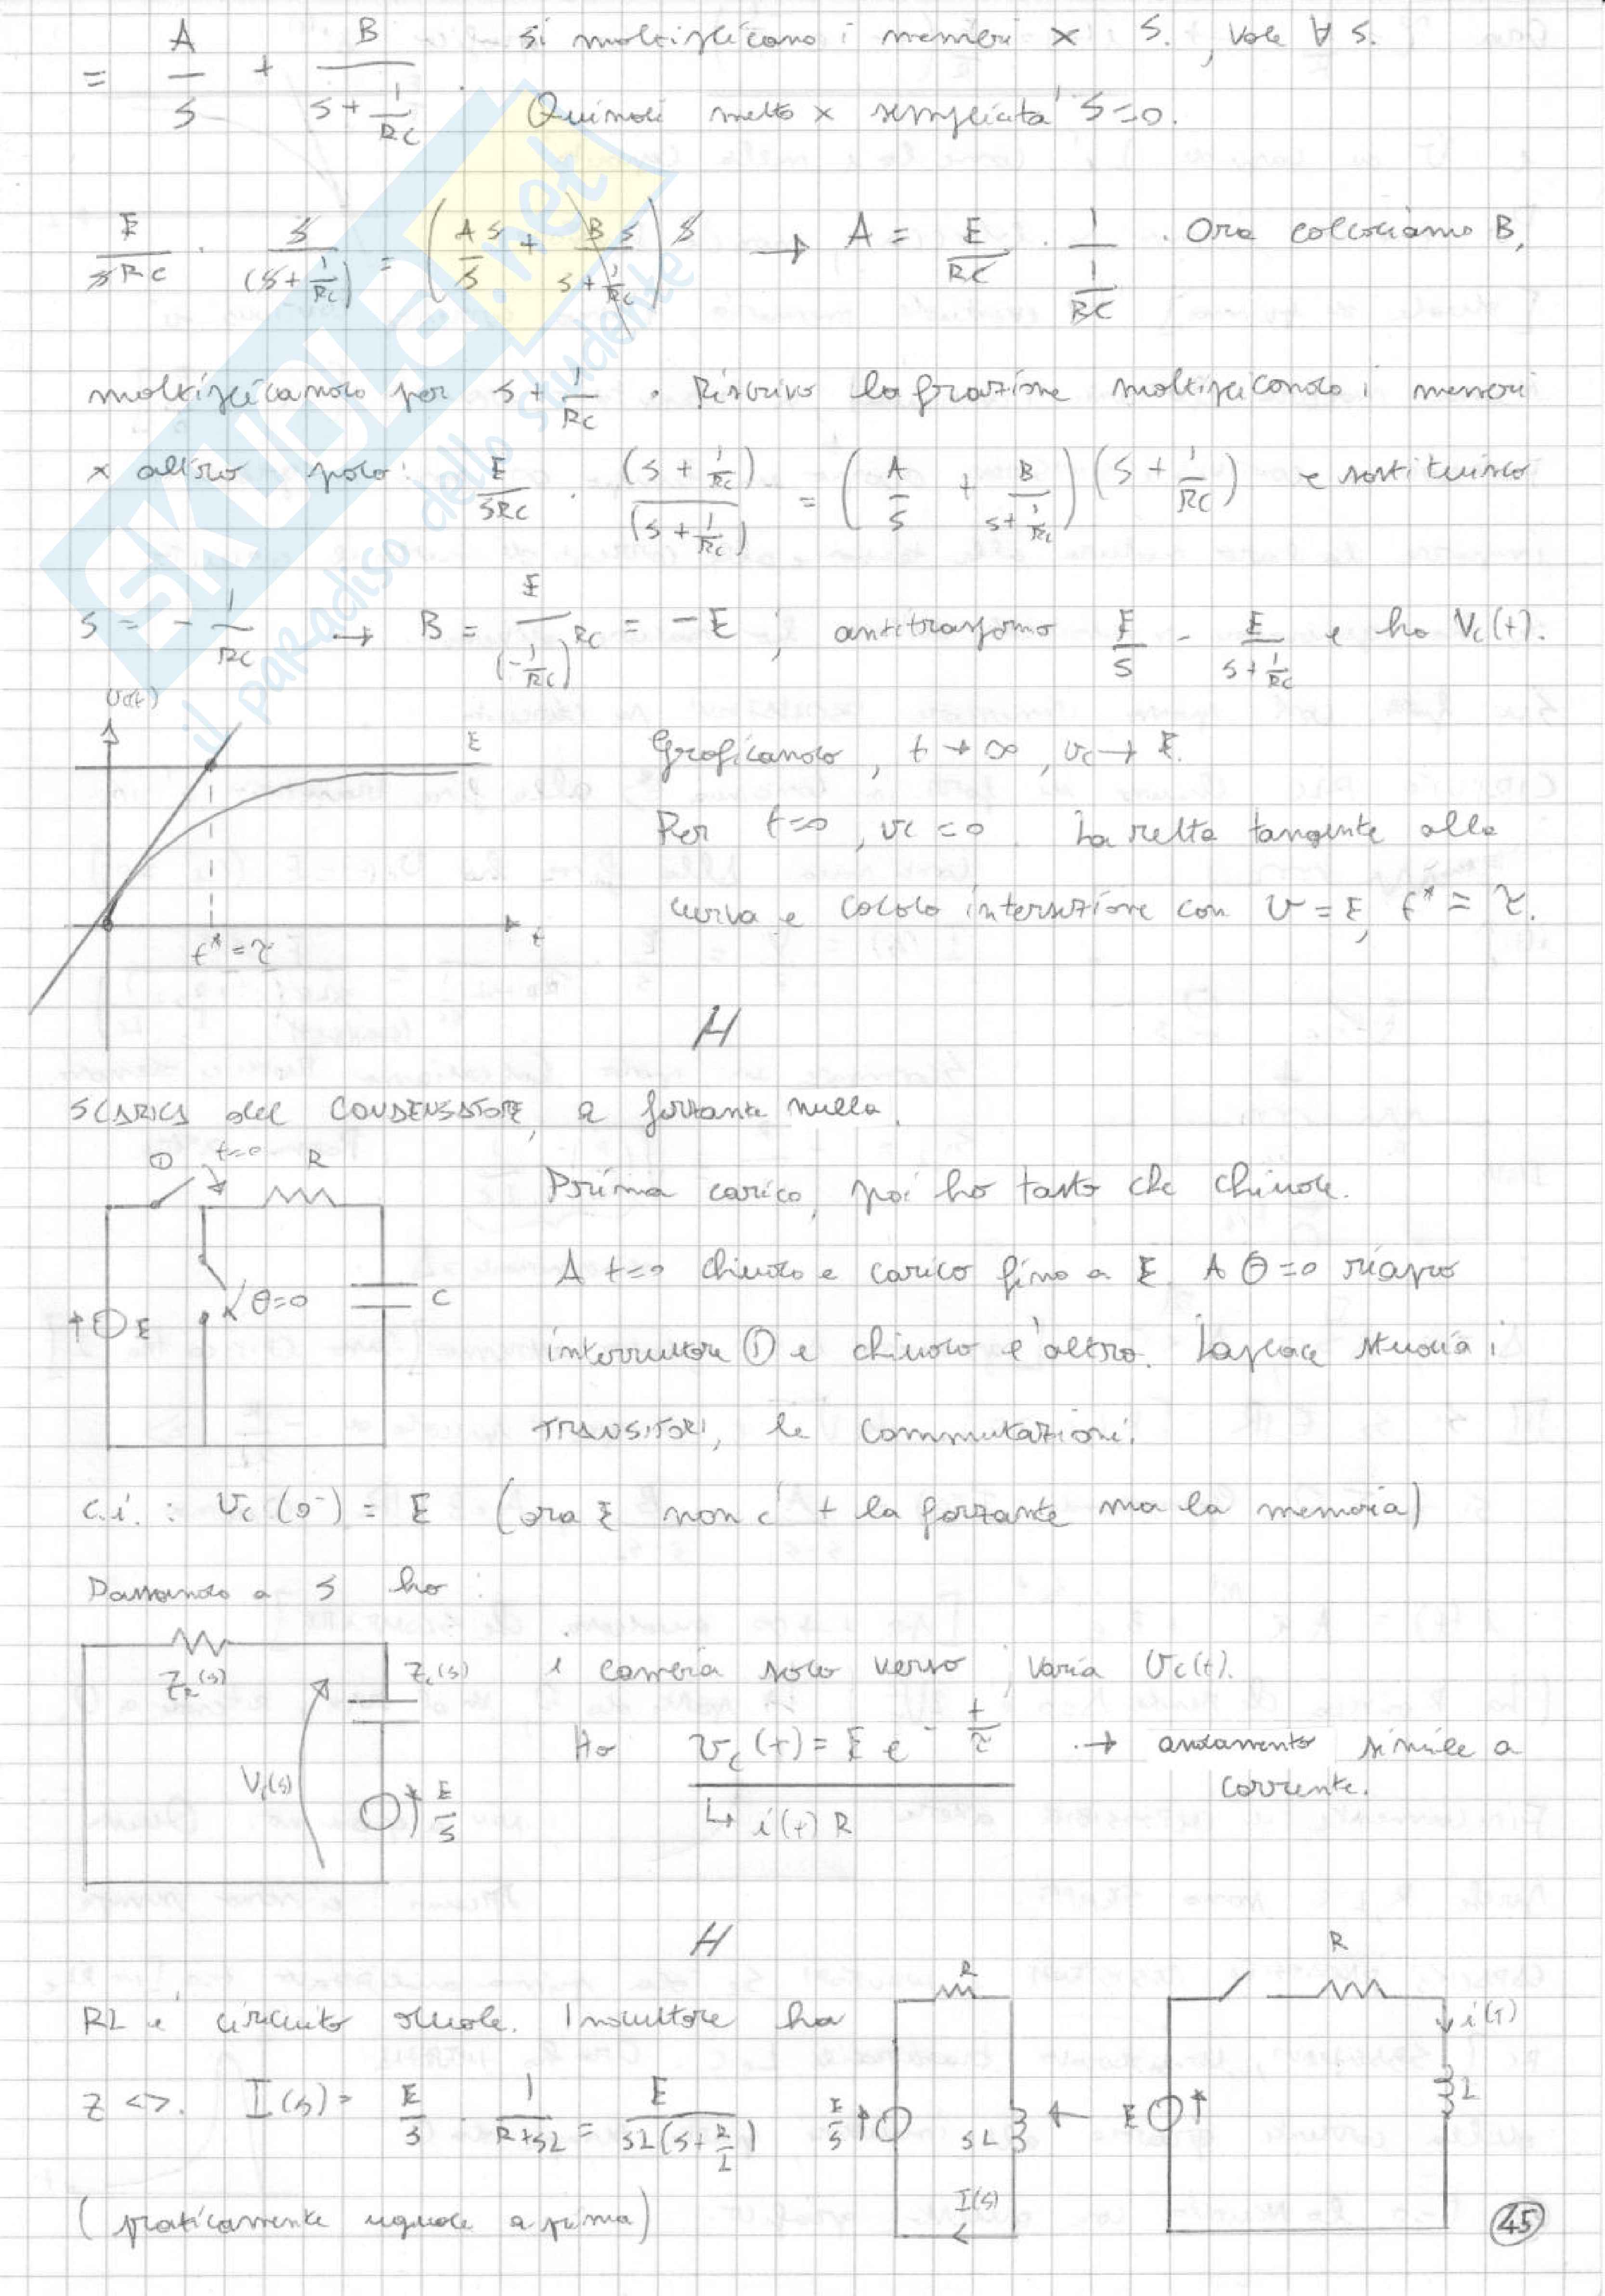 = A/s + B/(s + 1/RC) . Si moltiplicano i membri x s. , vale ∀ s.
Quindi metto x semplicità s=0.
E/(sRC) · s/(s + 1/RC) = (A s/s + B s/(s + 1/RC)) s → A = E/RC · 1/(1/RC) . Ora calcoliamo B,
moltiplicando per s + 1/RC . Riscrivo la frazione moltiplicando i membri
x altro polo: E/(sRC) · (s + 1/RC)/(s + 1/RC) = (A/s + B/(s + 1/RC)) (s + 1/RC) e sostituisco
s = - 1/RC → B = E/((-1/RC) RC) = - E ; antitrasformo E/s - E/(s + 1/RC) e ho Vc(t).
vc(t)
E
t* = τ
t
Graficando, t → ∞, vc → E.
Per t=0, vc = 0. La retta tangente alla
curva e calcolo intersezione con v = E, t* = τ.
H
SCARICA del CONDENSATORE, a forzante nulla.
① t=0 R
θ=0
C
E
Prima carico, poi ho tasto che chiude.
A t=0 chiudo e carico fino a E. A θ=0 riapro
interruttore ① e chiudo l'altro. Laplace studia i
TRANSITORI, le commutazioni.
c.i. : vc(0⁻) = E (ora E non è + la forzante ma la memoria)
Passando a s ho:
ZR(s)
Zc(s)
Vc(s)
E/s
i cambia solo verso, varia vc(t).
Ho vc(t) = E e^(- t/τ) → andamento simile a
corrente.
↳ i(t) R
H
RL è circuito duale. Induttore ha
Z <>. I(s) = E/s · 1/(R+sL) = E/(sL(s + R/L))
(praticamente uguale a prima)
R
E/s
sL
I(s)
←
R
i(t)
L
E
45
SKUOLA.net
il paradiso dello studente